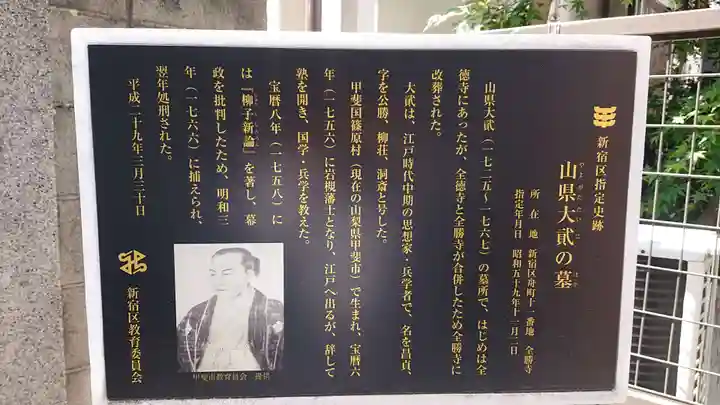 新宿区指定史跡
やまがただいに　はか
山県大貳の墓
所在地　新宿区舟町十一番地　全勝寺
指定年月日　昭和五十九年十二月二日
山県大貳（一七二五～一七六七）の墓所で、はじめは全
徳寺にあったが、全徳寺と全勝寺が合併したため全勝寺に
改葬された。
大貳は、江戸時代中期の思想家・兵学者で、名を昌貞、
字を公勝、柳荘、洞斎と号した。
甲斐国篠原村（現在の山梨県甲斐市）で生まれ、宝暦六
年（一七五六）に岩槻藩士となり、江戸へ出るが、辞して
塾を開き、国学・兵学を教えた。
宝暦八年（一七五八）に
は『柳子新論』を著し、幕
政を批判したため、明和三
年（一七六六）に捕えられ、
翌年処刑された。
平成二十九年三月三十日
新宿区教育委員会
甲斐市教育委員会　提供